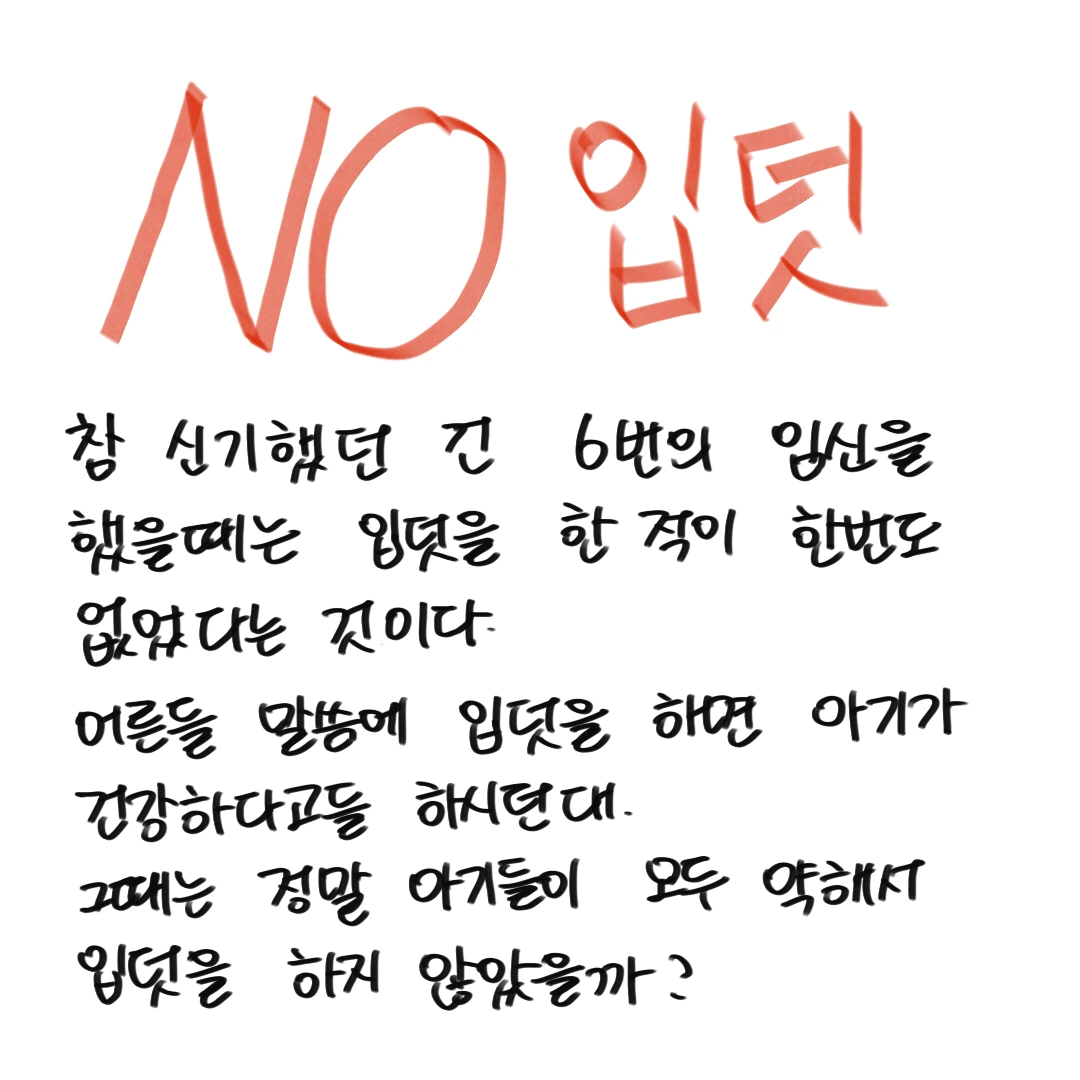 NO 입덧
참 신기했던 건 6번의 임신을
했을때는 입덧을 한 적이 한번도
없었다는 것이다.
어른들 말씀에 입덧을 하면 아기가
건강하다고들 하시던대.
그때는 정말 아기들이 모두 약해서
입덧을 하지 않았을까?